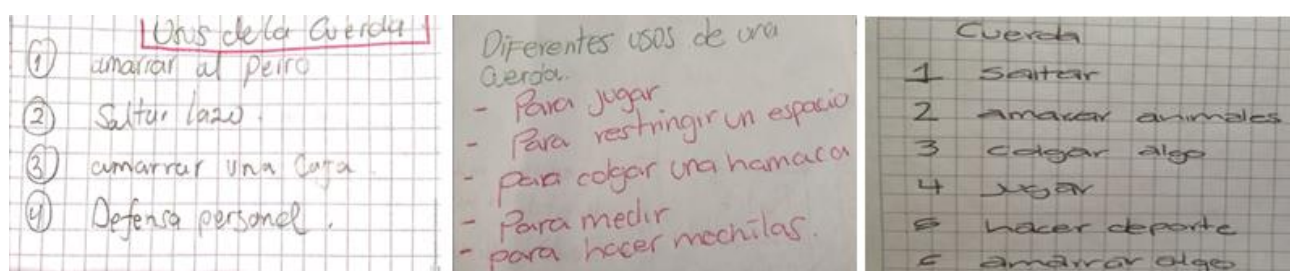 Usos de la Cuerda
① amarrar al perro
② Saltar lazo.
③ amarrar una caja.
④ Defensa personal.
Diferentes usos de una
cuerda.
- Para jugar
- Para restringir un espacio
- para colgar una hamaca
- Para medir
- para hacer mochilas.
Cuerda
1 saltar
2 amarrar animales
3 colgar algo
4 jugar
5 hacer deporte
6 amarrar algo